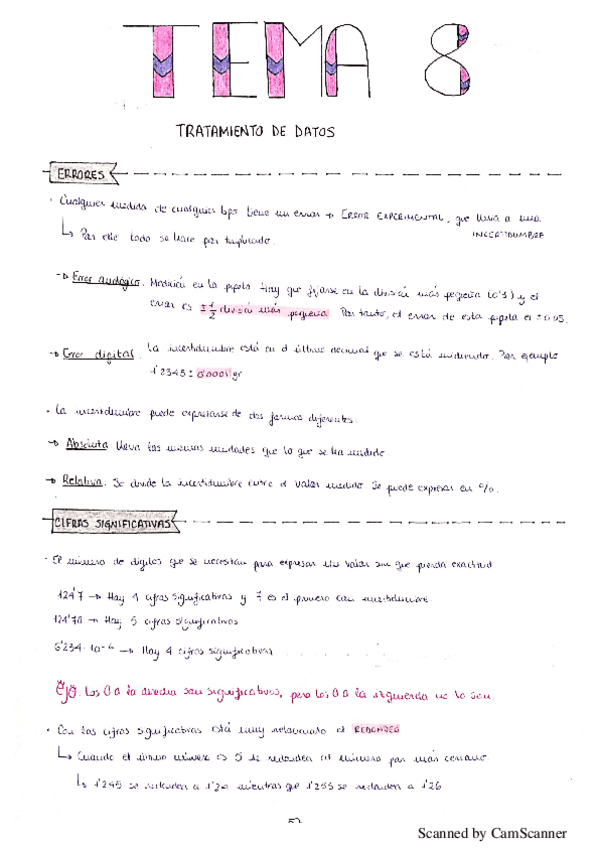 TEMA 8
TRATAMIENTO DE DATOS
ERRORES
· Cualquier medida de cualquier tipo tiene un error → ERROR EXPERIMENTAL, que lleva a una
INCERTIDUMBRE
↳ Por ello todo se hace por triplicado.
→ Error analógico. Medición en la pipeta. Hay que fijarse en la división más pequeña (0'1) y el
error es ± 1/2 división más pequeña. Por tanto, el error de esta pipeta es ± 0'05.
→ Error digital. La incertidumbre está en el último decimal que se está midiendo. Por ejemplo
1'2345 ± 0'0001 gr
· La incertidumbre puede expresarse de dos formas diferentes.
→ Absoluta. Lleva las mismas unidades que lo que se ha medido
→ Relativa. Se divide la incertidumbre entre el valor medido. Se puede expresar en %.
CIFRAS SIGNIFICATIVAS
· El número de dígitos que se necesitan para expresar un valor sin que pierda exactitud
124'7 → Hay 4 cifras significativas y 7 es el primero con incertidumbre.
→ Hay 5 cifras significativas
→ Hay 4 cifras significativas
Ojo. Los 0 a la derecha son significativos, pero los 0 a la izquierda no lo son.
· Con las cifras significativas está muy relacionado el REDONDEO
↳ Cuando el último número es 5 se redondea al número par más cercano
↳ 1'245 se redondea a 1'24 mientras que 1'255 se redondea a 1'26
Scanned by CamScanner